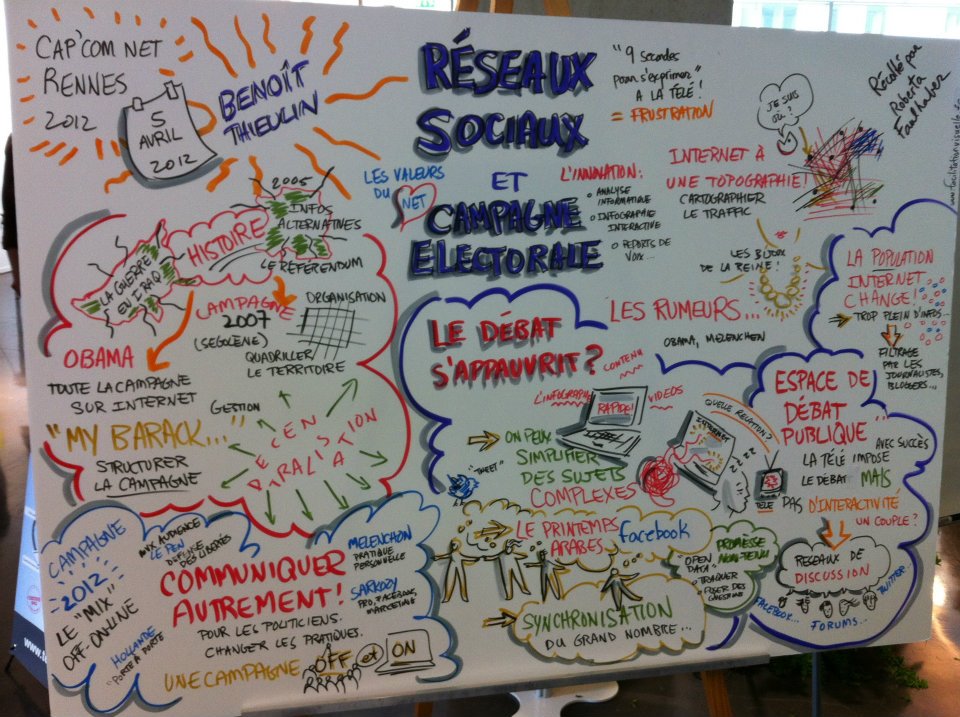 CAP'COM NET
RENNES
2012
5
AVRIL
2012
BENOÎT
THIEULIN
RÉSEAUX
SOCIAUX
ET
CAMPAGNE
ELECTORALE
"9 secondes
pour s'exprimer"
A LA TÉLÉ!
= FRUSTRATION
JE SUIS
OÙ?
Récolté par
Roberta
Faulhaber
LES VALEURS
DU NET
L'INNOVATION:
ANALYSE
INFORMATIQUE
INFOGRAPHIE
INTERACTIVE
REPORTS DE
VOIX...
INTERNET À
UNE TOPOGRAPHIE!
CARTOGRAPHIER
LE TRAFFIC
LES BIJOUX
DE LA REINE!
LES RUMEURS...
OBAMA, MELENCHEN
LA POPULATION
INTERNET
CHANGE!
TROP PLEIN D'INFOS...
FILTRAGE
PAR LES
JOURNALISTES,
BLOGGERS...
HISTOIRE
2005
INFOS
ALTERNATIVES
LE RÉFERENDUM
LA GUERRE
EN IRAQ
OBAMA
TOUTE LA CAMPAGNE
SUR INTERNET
"MY BARACK..."
STRUCTURER
LA CAMPAGNE
CAMPAGNE
2007
(SEGOLÈNE)
ORGANISATION
QUADRILLER
LE TERRITOIRE
GESTION
DECENTRALISATION
LE DÉBAT
S'APPAUVRIT?
CONTENU
L'INFOGRAPHIE
RAPIDE!
VIDEOS
ON PEUX
SIMPLIFIER
DES SUJETS
COMPLEXES
"TWEET"
INTERNET
QUELLE RELATION?
TÉLÉ
ESPACE DE
DÉBAT
PUBLIQUE...
AVEC SUCCÈS
LA TÉLÉ IMPOSE
LE DÉBAT MAIS
PAS D'INTERACTIVITÉ
UN COUPLE?
RESEAUX DE
DISCUSSION
FACEBOOK...
FORUMS...
TWITTER
LE PRINTEMPS
ARABES
facebook
SYNCHRONISATION
DU GRAND NOMBRE...
"OPEN
DATA"
PROMESSE
CAMPAGNE
2012
LE "MIX"
OFF-ON-LINE
HOLLANDE
"PORTE À PORTE"
MIX AUDIENCE
LE PEN
DEFENSE
DES LIBERTÉS
COMMUNIQUER
AUTREMENT!
POUR LES POLITICIENS.
CHANGER LES PRATIQUES.
UNE CAMPAGNE OFF et ON
MELENCHON
PRATIQUE
PERSONNELLE
SARKOZY
PRO, FACEBOOK,
MARKETING